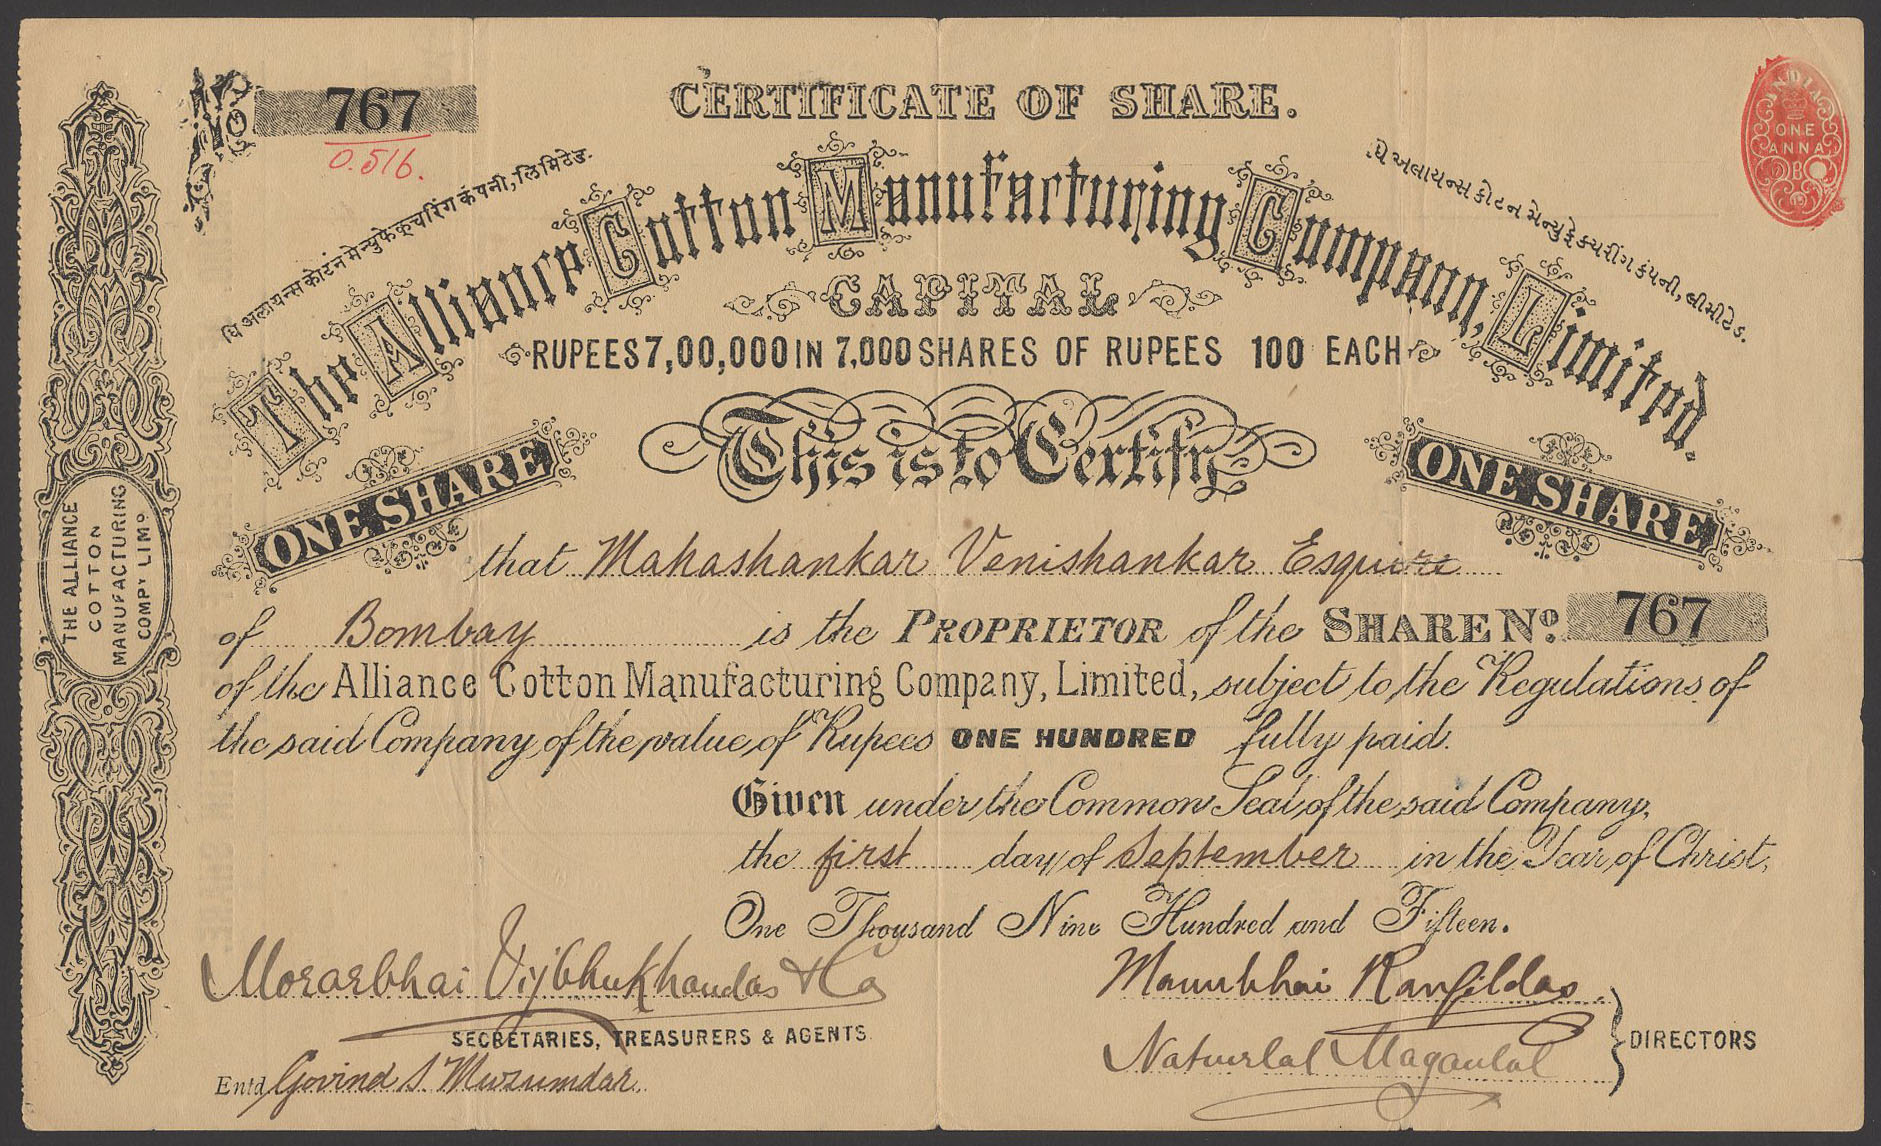 No. 767
0.516.
CERTIFICATE OF SHARE.
INDIA
ONE
ANNA
B
धि अलायन्स कोटन मेन्युफेक्चरिंग कंपनी, लिमिटेड.
ધિ અલાયન્સ કોટન મેન્યુફેકચરીંગ કંપની, લીમીટેડ.
The Alliance Cotton Manufacturing Company, Limited.
CAPITAL
RUPEES 7,00,000 IN 7,000 SHARES OF RUPEES 100 EACH
This is to Certify
ONE SHARE
ONE SHARE
that Mahashankar Venishankar Esquire
of Bombay is the PROPRIETOR of the SHARE No. 767
of the Alliance Cotton Manufacturing Company, Limited, subject to the Regulations of
the said Company of the value of Rupees ONE HUNDRED fully paid.
Given under the Common Seal of the said Company,
the first day of September in the Year of Christ,
One Thousand Nine Hundred and Fifteen.
Morarbhai Vijbhukhandas & Co
SECRETARIES, TREASURERS & AGENTS.
Entd Govind S Muzumdar.
Manubhai
Naturlal Maganlal
DIRECTORS
THE ALLIANCE
COTTON
MANUFACTURING
COMPY LIMD.